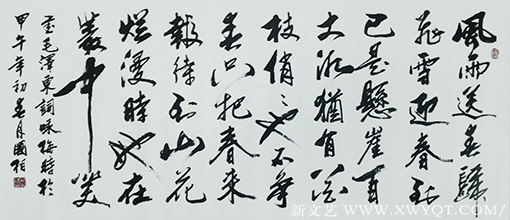 風雨送春歸
飛雪迎春到
已是懸崖百
丈冰猶有花
枝俏〻也不爭
春只把春来
報待到山花
爛漫時她在
叢中笑
毛澤東詞咏梅時於
甲午年初春月國柏
新文艺 WWW.XWYQT.COM